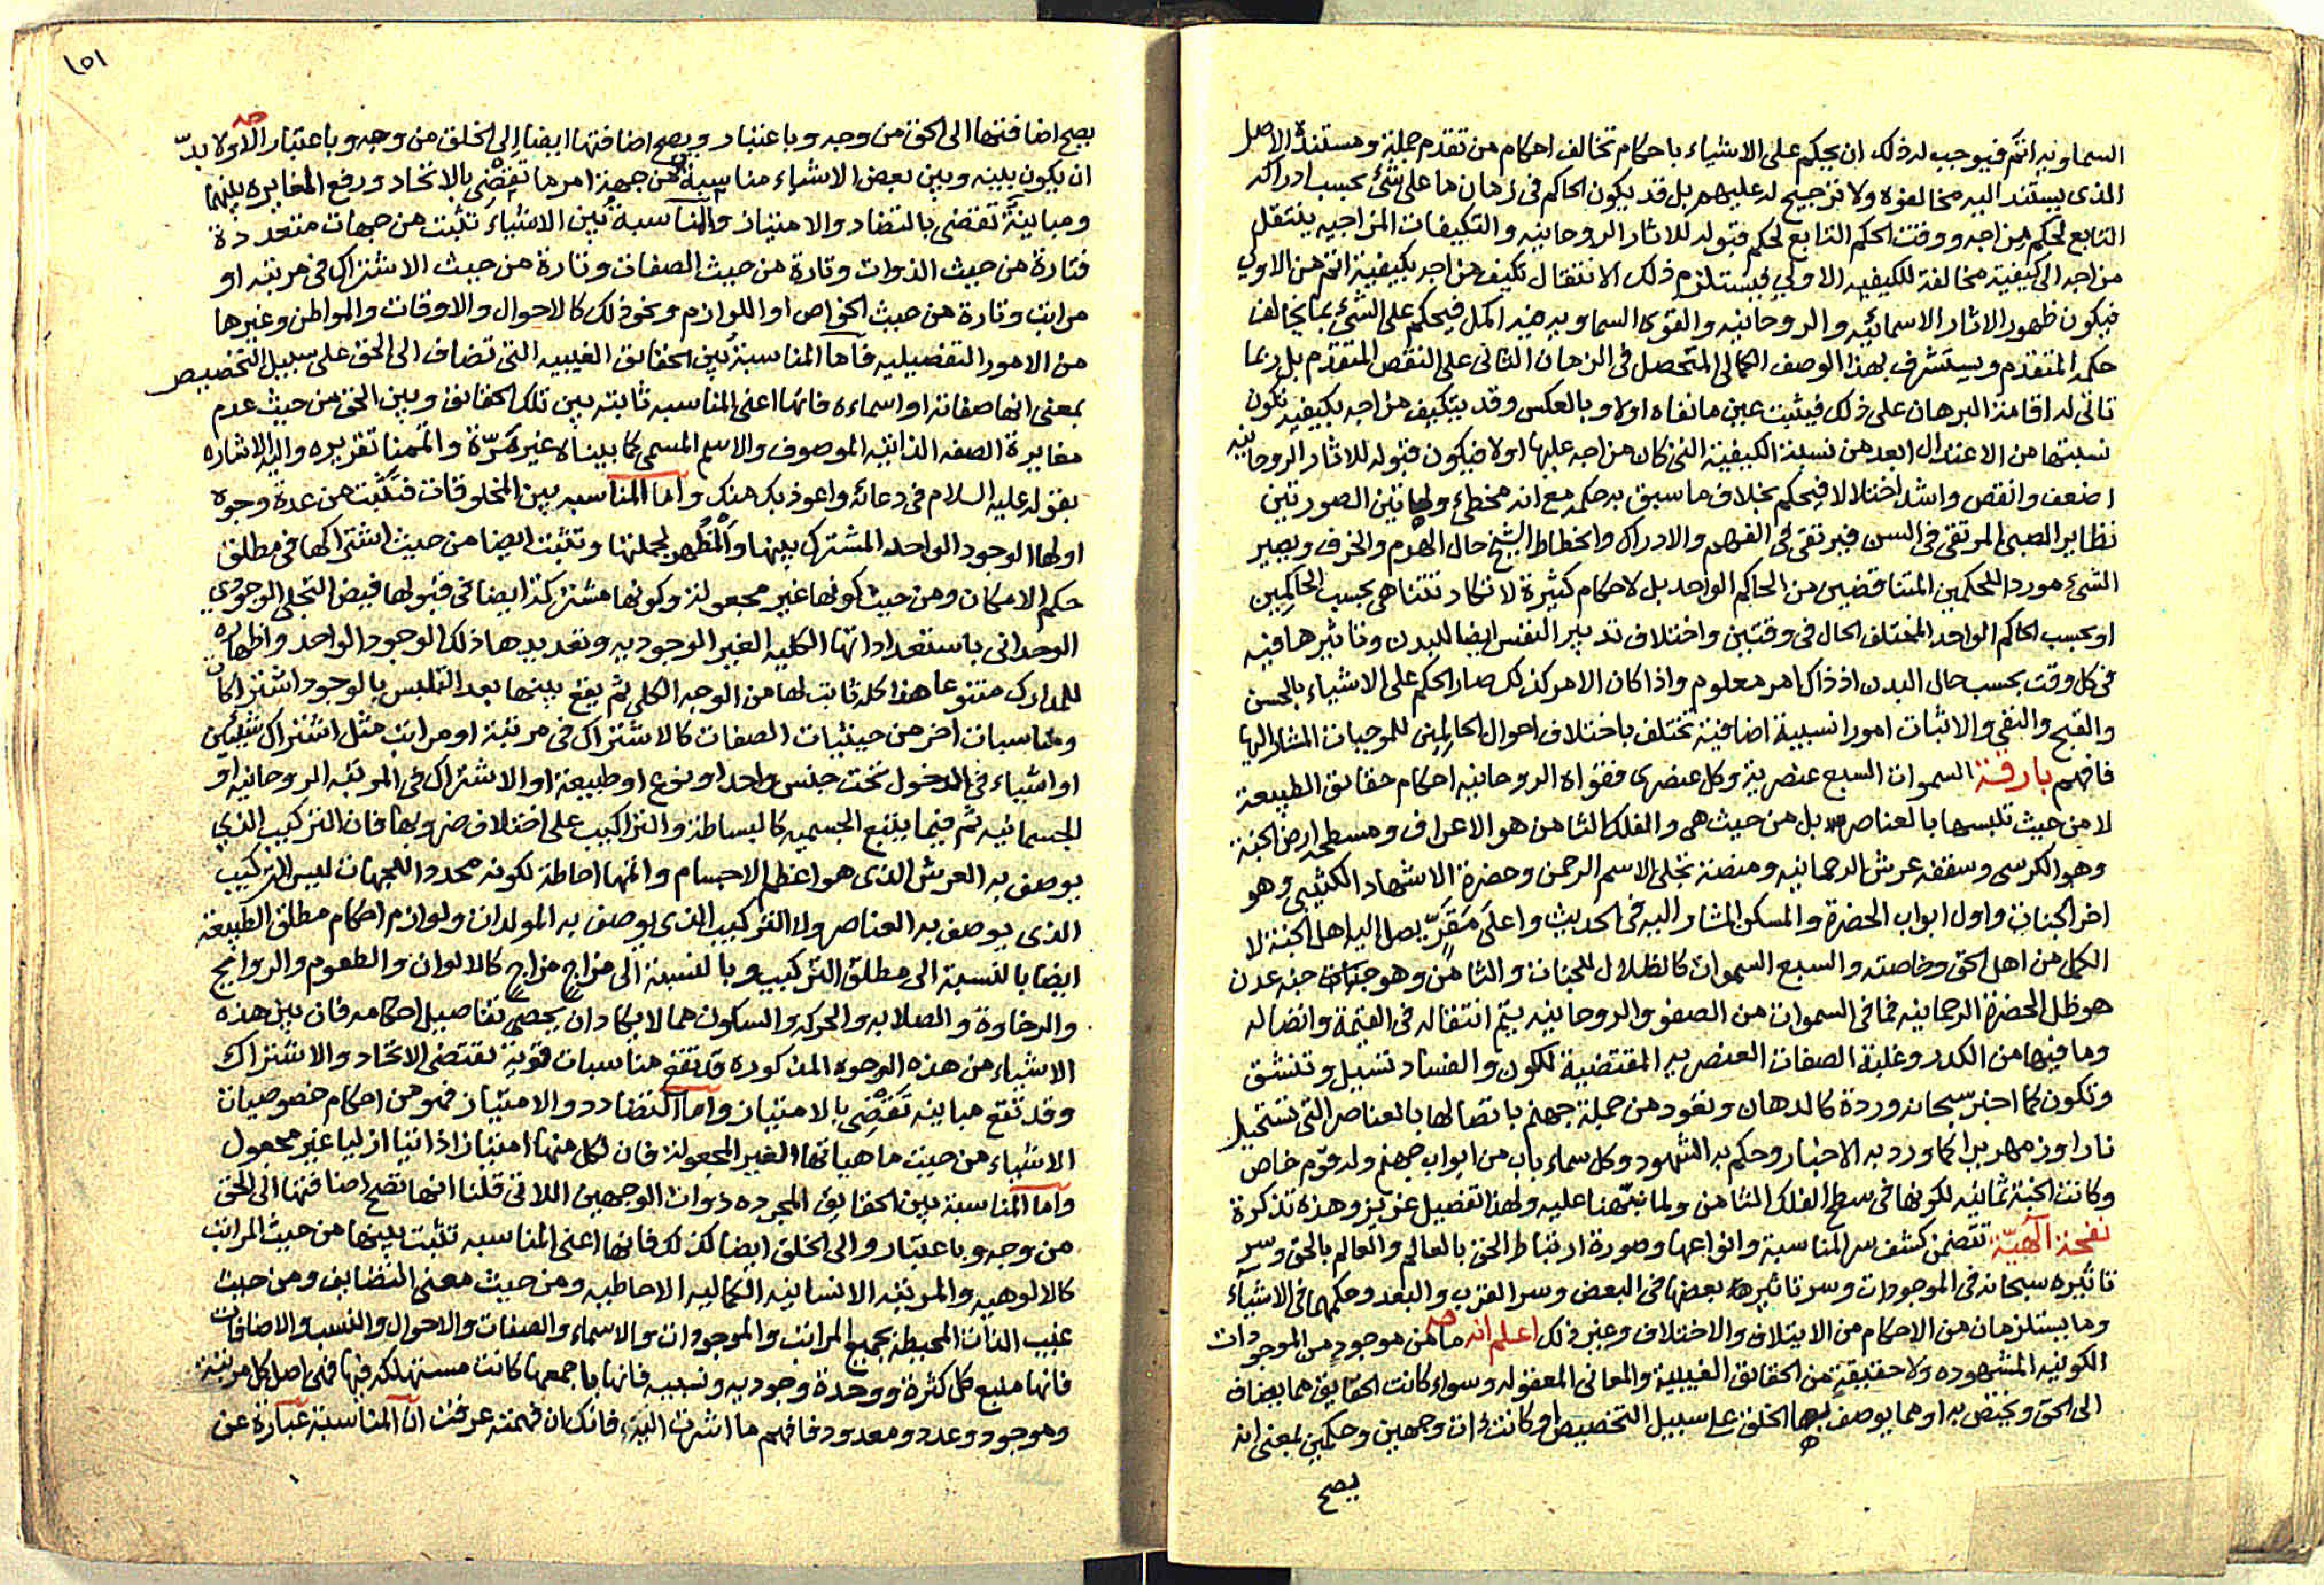 السماويه اتم فيوجب له ذلك ان يحكم على الاشياء باحكام تخالف احكام من تقدم جملة ومستنده الاصل
الذى يستند اليه مخالفوه ولا ترجيح له عليهم بل قد يكون الحاكم فى زمان ما على شئ بحسب ادراكه
التابع لحكم مزاجه ووقت الحكم التابع لحكم قبوله للاثار الروحانيه والتكيفات المزاجيه ينتقل
مزاجه الى كيفية مخالفة للكيفيه الاولى فيستلزم ذلك الانتقال تكيف مزاجه بكيفية اتم من الاولى
فيكون ظهور الاثار الاسمائيه والروحانيه والقوى السماويه فيه اكمل فيحكم على الشئ بما يخالف
حكمه المتقدم ويستشرف بهذا الوصف الكمالى المتحصل فى الزمان الثانى على النقص المتقدم بل ربما
تاتى له اقامة البرهان على ذلك فيثبت عين ما نفاه اولا وبالعكس وقد يتكيف مزاجه بكيفيه تكون
نسبتها من الاعتدال ابعد من نسبة الكيفية التى كان مزاجه عليها اولا فيكون قبوله للاثار الروحانيه
اضعف وانقص واشد اختلالا فيحكم بخلاف ما سبق به حكمه مع انه مخطئ ولهاتين الصورتين
نظاير الصبى المرتقى فى السن فيرتقى فى الفهم والادراك وانحطاط الشيخ حال الهرم والخرف ويصير
الشئ موردا للحكمين المتناقضين من الحاكم الواحد بل لاحكام كثيرة لا تكاد تتناهى بحسب الحاكمين
او بحسب الحاكم الواحد المختلف الحال فى وقتين واختلاف تدبير النفس ايضا للبدن وتاثيرها فيه
فى كل وقت بحسب حال البدن اذ ذاك امر معلوم واذا كان الامر كذلك صار الحكم على الاشياء بالحسن
والقبح والنفى والاثبات امورا نسبية اضافية تختلف باختلاف احوال الحاكمين للموجبات المشار اليها
فافهم بارقة السموات السبع عنصرية وكل عنصرى فقواه الروحانيه احكام حقايق الطبيعة
لا من حيث تلبسها بالعناصر بل من حيث هى والفلك الثامن هو الاعراف ومسطحه ارض الجنة
وهو الكرسى وسقفه عرش الرحمانيه ومنصة تجلى الاسم الرحمن وحضرة الاشهاد الكثيبى وهو
اخر الجنات واول ابواب الحضرة والمسكن المشار اليه فى الحديث واعلى مقر يصل اليه اهل الجنة لا
الكمل من اهل الحق وخاصته والسبع السموات كالظلال للجنات والثامن وهو جنات جنة عدن
هو ظل الحضرة الرحمانيه فما فى السموات من الصفو والروحانيه يتم انتقاله فى القيمة واتصاله
وما فيها من الكدر وغلبة الصفات العنصريه المقتضية للكون والفساد تسيل وتنشق
وتكون كما اخبر سبحانه وردة كالدهان وتعود من جملة جهنم باتصالها بالعناصر التى تستحيل
نارا وزمهريرا كما ورد به الاخبار وحكم به الشهود وكل سماء باب من ابواب جهنم وله قوم خاص
وكانت الجنة ثمانيه لكونها فى سطح الفلك الثامن ولما نبهنا عليه ولهذا تفصيل عزيز وهذه تذكرة
نفحة الهية تتضمن كشف سر المناسبة وانواعها وصورة ارتباط الحق بالعالم والعالم بالحق وسر
تاثيره سبحانه فى الموجودات وسر تاثيرها بعضها فى البعض وسر القرب والبعد وحكمهما فى الاشياء
وما يستلزمان من الاحكام من الايتلاف والاختلاف وغير ذلك اعلم انه ما من موجود من الموجودات
الكونيه المشهوده ولا حقيقة من الحقائق الغيبية والمعانى المعقوله وسواء كانت الحقايق مما يضاف
الى الحق ويختص به او مما يوصف بها الخلق على سبيل التخصيص او كانت ذات وجهين وحكمين بمعنى انه
يصح
١٥١
يصح اضافتها الى الحق من وجه وباعتبار ويصح اضافتها ايضا الى الخلق من وجه وباعتبار الا ولا بد
ان يكون بينه وبين بعض الاشياء مناسبة من جهة امر ما تقضى بالاتحاد ورفع المغايره بينهما
ومباينة تقضى بالتضاد والامتياز والمناسبة بين الاشياء تثبت من جهات متعددة
فتارة من حيث الذوات وتارة من حيث الصفات وتارة من حيث الاشتراك فى مرتبه او
مراتب وتارة من حيث الخواص او اللوازم ونحو ذلك كالاحوال والاوقات والمواطن وغيرها
من الامور التفصيليه فاما المناسبة بين الحقائق الغيبيه التى تضاف الى الحق على سبيل التخصيص
بمعنى انها صفاته او اسماءه فانها اعنى المناسبه ثابته بين تلك الحقائق وبين الحق من حيث عدم
مغايرة الصفه الذاتيه الموصوف والاسم المسمى كما بيناه غير مرة واتممنا تقريره واليه الاشاره
بقوله عليه السلام فى دعائه واعوذ بك منك واما المناسبه بين المخلوقات فتثبت من عدة وجوه
اولها الوجود الواحد المشترك بينها والمظهر لجملتها وتثبت ايضا من حيث اشتراكها فى مطلق
حكم الامكان ومن حيث كونها غير مجعولة وكونها مشتركة ايضا فى قبولها فيض التجلى الوجودي
الوحدانى باستعداداتها الكليه الغير الوجوديه وتعديدها ذلك الوجود الواحد واظهاره
للمدارك متنوعا هذا كله ثابت لها من الوجه الكلى ثم يقع بينها بعد التلبس بالوجود اشتراكات
ومناسبات اخر من حيثيات الصفات كالاشتراك فى مرتبة او مراتب مثل اشتراك شيئين
او اشياء فى الدخول تحت جنس واحد او نوع او طبيعة او الاشتراك فى المرتبه الروحانيه او
الجسمانيه ثم فيما يتبع الجسميه كالبساطة والتراكيب على اختلاف ضروبها فان التركيب الذي
يوصف به العرش الذى هو اعظم الاجسام واتمها احاطة لكونه محددا للجهات ليس التركيب
الذى يوصف به العناصر ولا التركيب الذى يوصف به المولدات ولوازم احكام مطلق الطبيعة
ايضا بالنسبة الى مطلق التركيب وبالنسبة الى مزاج مزاج كالالوان والطعوم والروايح
والرخاوة والصلابه والحركه والسكون مما لا يكاد ان يحصى تفاصيل احكامه فان بين هذه
الاشياء من هذه الوجوه المذكوره قد تقع مناسبات قوية تقتضى الاتحاد والاشتراك
وقد تقع مباينه تقضى بالامتياز واما التضادد والامتياز فهو من احكام خصوصيات
الاشياء من حيث ماهياتها الغير المجعولة فان لكل منها امتيازا ذاتيا ازليا غير مجعول
واما المناسبة بين الحقايق المجرده ذوات الوجهين اللاتى قلنا انها تصح اضافتها الى الحق
من وجه وباعتبار والى الخلق ايضا كذلك فانها اعنى المناسبه تثبت بينها من حيث المراتب
كالالوهيه والمرتبه الانسانيه الكماليه الاحاطيه ومن حيث معنى التضايف ومن حيث
غيب الذات المحيطة بجميع المراتب والموجودات والاسماء والصفات والاحوال والنسب والاضافات
فانها منبع كل كثرة ووحدة وجوديه ونسبيه فانها باجمعها كانت مستهلكه فيها فهى اصل كل مرتبة
وموجود وعدد ومعدود فافهم ما اشرت اليه فانك ان فهمته عرفت ان المناسبة عبارة عن